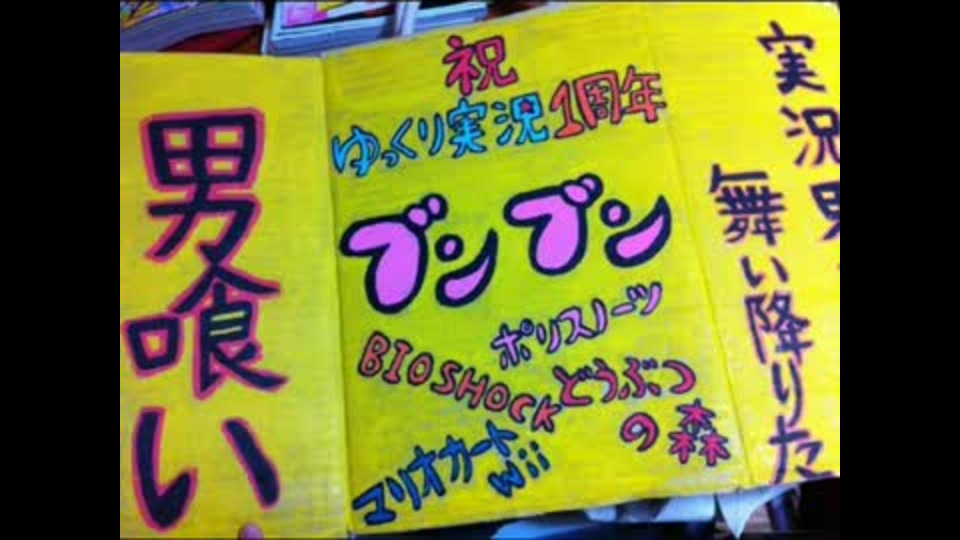 男喰い
祝
ゆっくり実況1周年
ブンブン
ポリスノーツ
BIOSHOCK
どうぶつ
の森
マリオカート
Wii
実況男
舞い降りた